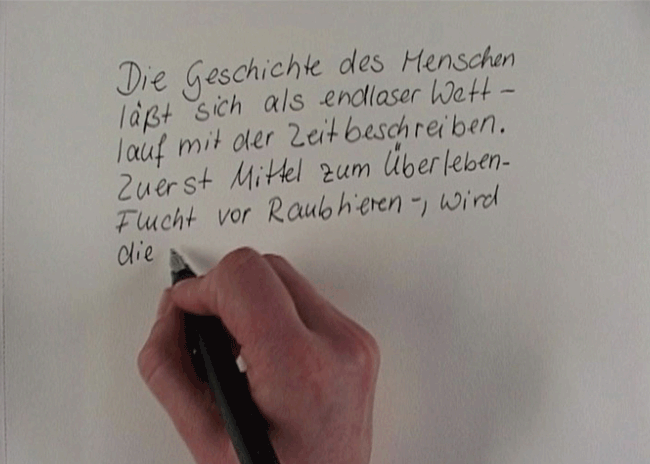 Die Geschichte des Menschen
läßt sich als endloser Wett-
lauf mit der Zeit beschreiben.
Zuerst Mittel zum Überleben-
Flucht vor Raubtieren -, wird
die